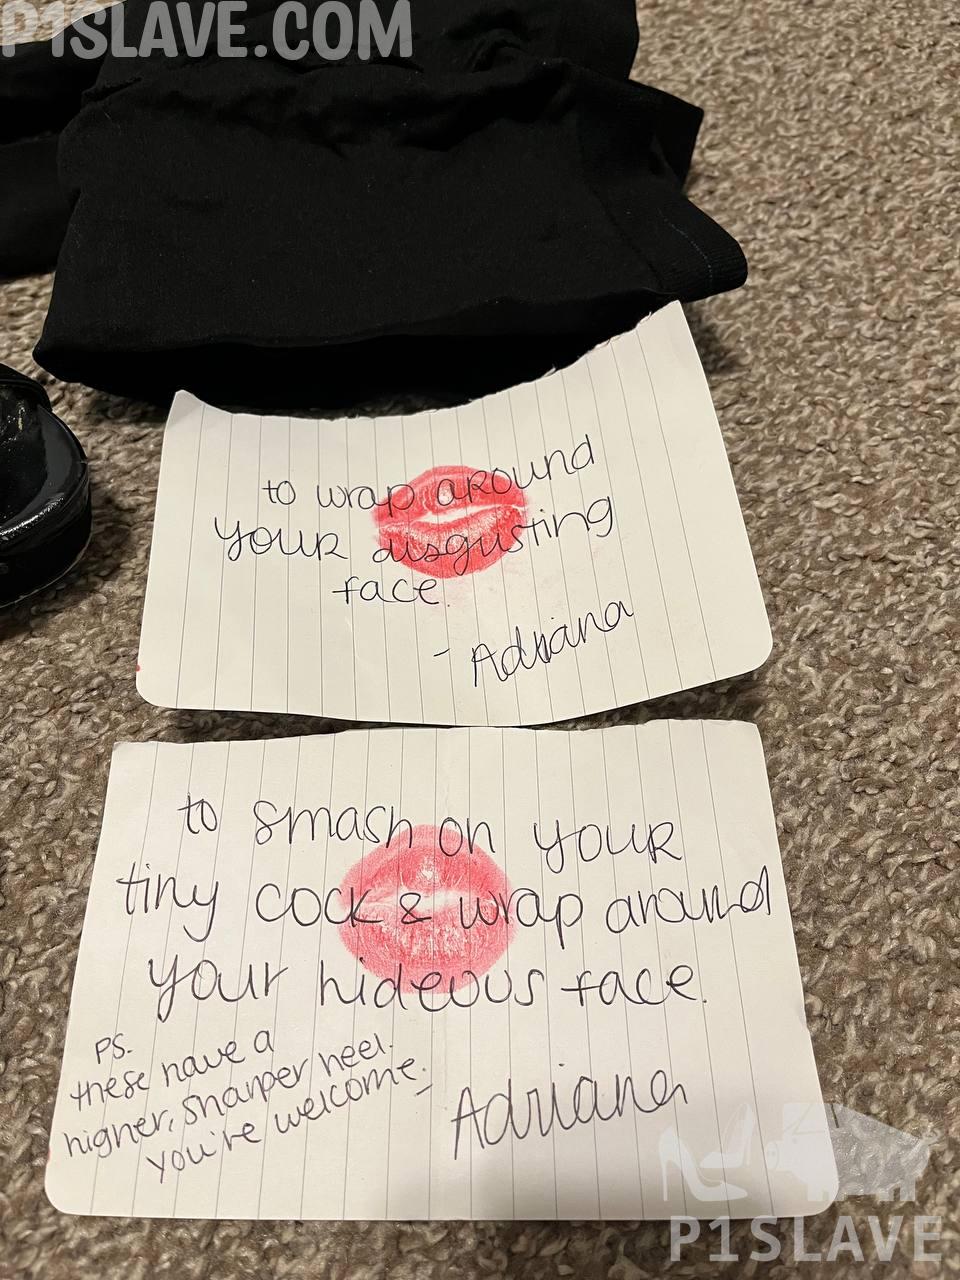 P1SLAVE.COM
to wrap around
your disgusting
face.
- Adriana
to smash on your
tiny cock & wrap around
your hideous face.
PS.
these have a
higher, sharper heel.
you're welcome.
- Adriana
P1SLAVE